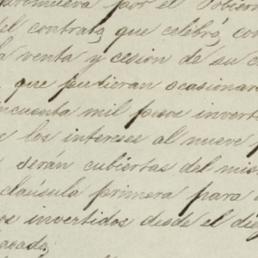 promueva por el Gobierno
el contrato que celebró con
la venta y cesion de su c
que pudieran ocasionar
ncuenta mil pesos invert
e los intereses al nueve p
serán cubiertas del mis
clausula primera para
os invertidos desde el die
asado,